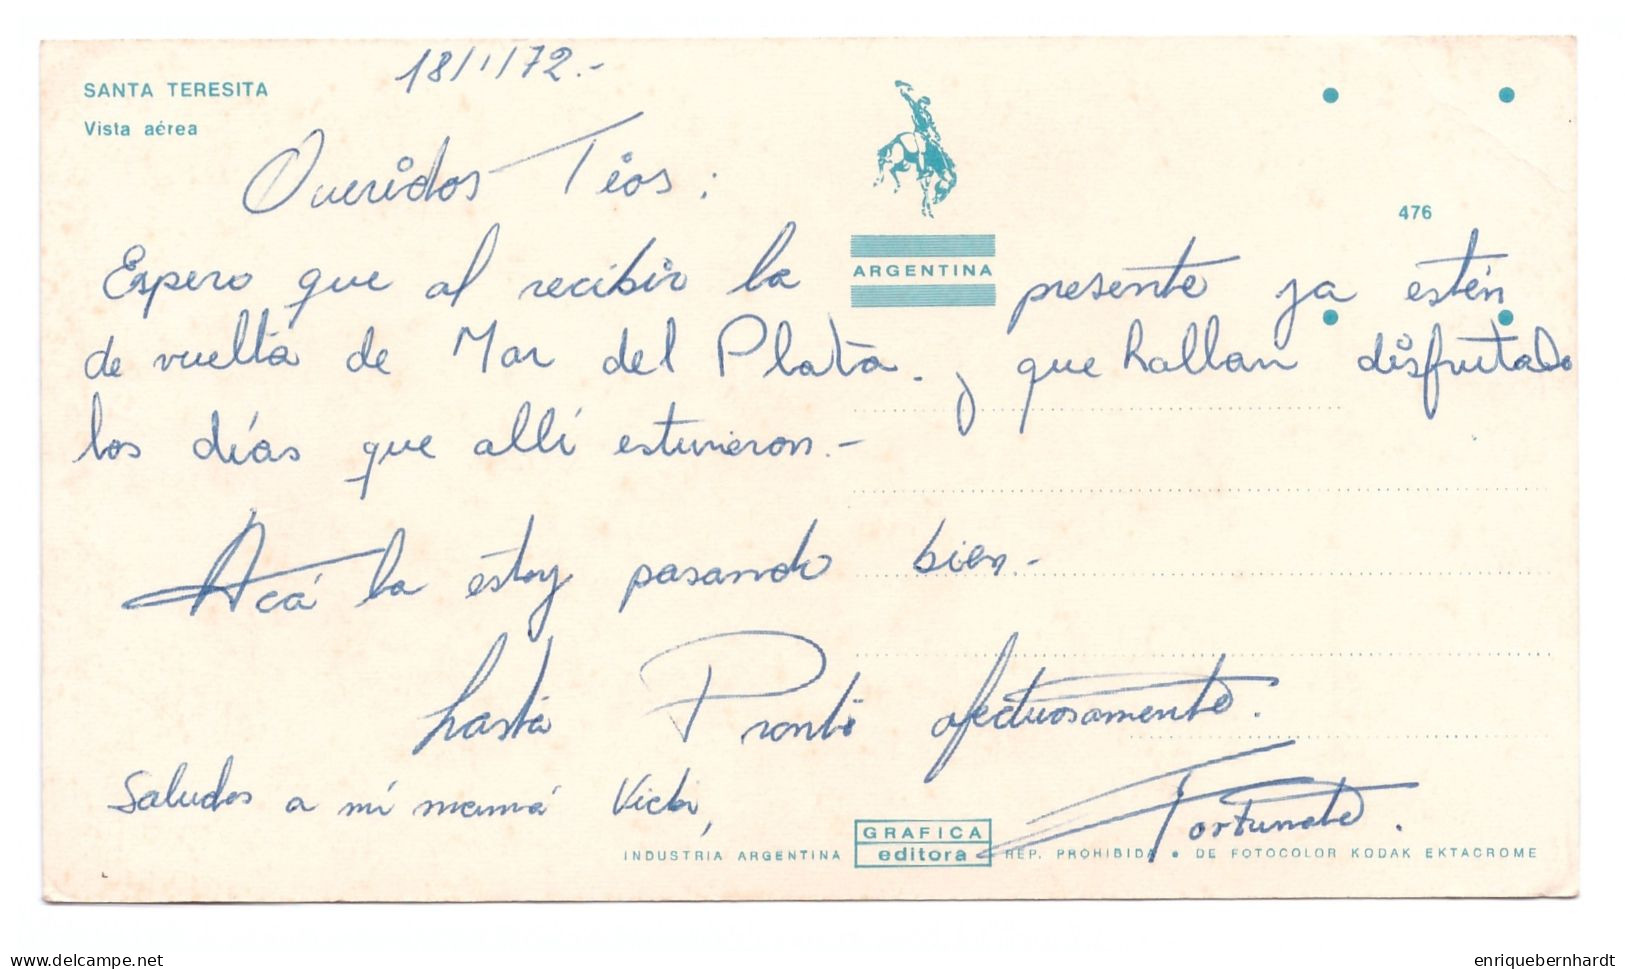 18/1/72.-
SANTA TERESITA
Vista aérea
Queridos Tios:
476
ARGENTINA
Espero que al recibir la presente ya estén
de vuelta de Mar del Plata. y que hallan disfrutado
los días que allí estuvieron.-
Acá la estoy pasando bien.-
hasta Pronto afectuosamente.
Saludos a mí mamá
Fortunato.
GRAFICA
editora
INDUSTRIA ARGENTINA
REP. PROHIBIDA • DE FOTOCOLOR KODAK EKTACROME
www.delcampe.net
enriquebernhardt